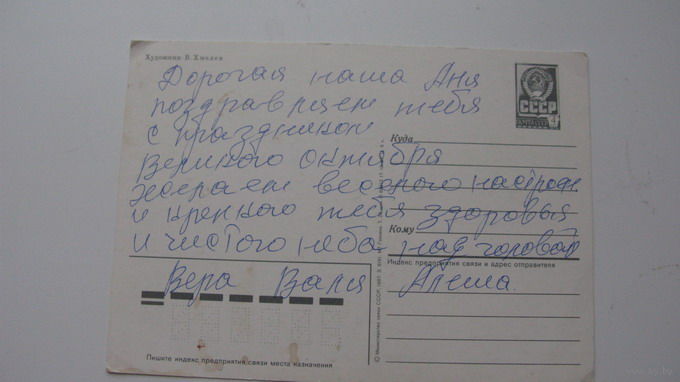 Художник В. Хмелев
СССР
Дорогая наша Аня
поздравляем тебя
с праздником
Великого октября
желаем веселого настроен
и крепкого тебя здоровья
и чистого неба над головой
Вера Валя Алеша
Куда
Кому
Индекс предприятия связи и адрес отправителя
Пишите индекс предприятия связи места назначения
© Министерство связи СССР, 1981
www.ay.by